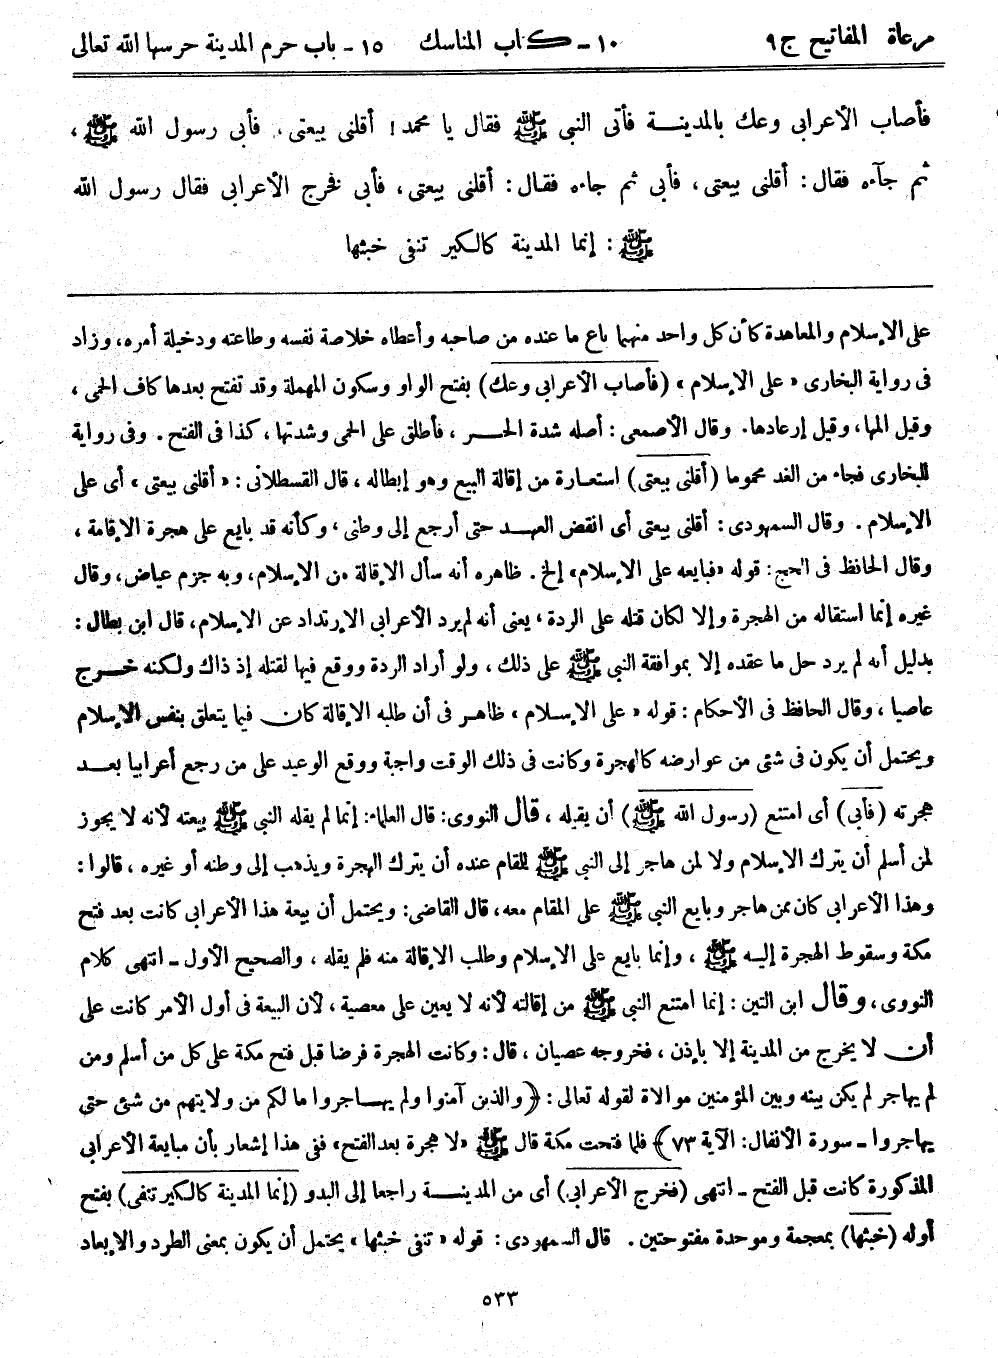 مرعاة المفاتيح ج ٩ ١٠ - كتاب المناسك ١٥ - باب حرم المدينة حرسها الله تعالى
فأصاب الأعرابى وعك بالمدينة فأتى النبى ﷺ فقال يا محمد! أقلنى بيعتى، فأبى رسول الله ﷺ،
ثم جآءه فقال: أقلنى بيعتى، فأبى ثم جاءه فقال: أقلنى بيعتى، فأبى فخرج الأعرابى فقال رسول الله
ﷺ: إنما المدينة كالكير تنفى خبثها
على الإسلام والمعاهدة كأن كل واحد منهما باع ما عنده من صاحبه وأعطاه خلاصة نفسه وطاعته ودخيلة أمره، وزاد
فى رواية البخارى «على الإسلام» (فأصاب الأعرابى وعك) بفتح الواو وسكون المهملة وقد تفتح بعدها كاف الحمى،
وقيل ألمها، وقيل إرعادها. وقال الأصمعى: أصله شدة الحر، فأطلق على الحمى وشدتها، كذا فى الفتح. وفى رواية
للبخارى فجاء من الغد محموما (أقلنى بيعتى) استعارة من إقالة البيع وهو إبطاله، قال القسطلانى: «أقلنى بيعتى» أى على
الإسلام. وقال السمهودى: أقلنى بيعتى أى انقض العهد حتى أرجع إلى وطنى، وكأنه قد بايع على هجرة الإقامة،
وقال الحافظ فى الحج: قوله «فبايعه على الإسلام» إلخ. ظاهره أنه سأل الإقالة من الإسلام، وبه جزم عياض، وقال
غيره إنما استقاله من الهجرة وإلا لكان قتله على الردة، يعنى أنه لم يرد الأعرابى الإرتداد عن الإسلام، قال ابن بطال:
بدليل أنه لم يرد حل ما عقده إلا بموافقة النبى ﷺ على ذلك، ولو أراد الردة ووقع فيها لقتله إذ ذاك ولكنه خرج
عاصيا، وقال الحافظ فى الأحكام: قوله «على الإسلام» ظاهر فى أن طلبه الإقالة كان فيما يتعلق بنفس الإسلام
ويحتمل أن يكون فى شئ من عوارضه كالهجرة وكانت فى ذلك الوقت واجبة ووقع الوعيد على من رجع أعرابيا بعد
هجرته (فأبى) أى امتنع (رسول الله ﷺ) أن يقيله، قال النووى: قال العلماء: إنما لم يقله النبى ﷺ بيعته لأنه لا يجوز
لمن أسلم أن يترك الإسلام ولا لمن هاجر إلى النبى ﷺ للمقام عنده أن يترك الهجرة ويذهب إلى وطنه أو غيره، قالوا:
وهذا الأعرابى كان ممن هاجر وبايع النبى ﷺ على المقام معه، قال القاضى: ويحتمل أن بيعة هذا الأعرابى كانت بعد فتح
مكة وسقوط الهجرة إليه ﷺ، وإنما بايع على الإسلام وطلب الإقالة منه فلم يقله، والصحيح الأول - انتهى كلام
النووى، وقال ابن التين: إنما امتنع النبى ﷺ من إقالته لأنه لا يعين على معصية، لأن البيعة فى أول الأمر كانت على
أن لا يخرج من المدينة إلا بإذن، فخروجه عصيان، قال: وكانت الهجرة فرضا قبل فتح مكة على كل من أسلم ومن
لم يهاجر لم يكن بينه وبين المؤمنين موالاة لقوله تعالى: ﴿والذين آمنوا ولم يهاجروا ما لكم من ولايتهم من شئ حتى
يهاجروا - سورة الأنفال: الآية ٧٣﴾ فلما فتحت مكة قال ﷺ «لا هجرة بعد الفتح» ففى هذا إشعار بأن مبايعة الأعرابى
المذكورة كانت قبل الفتح - انتهى (فخرج الأعرابى) أى من المدينة راجعا إلى البدو (إنما المدينة كالكير تنفى) بفتح
أوله (خبثها) بمعجمة وموحدة مفتوحتين. قال السمهودى: قوله «تنفى خبثها» يحتمل أن يكون بمعنى الطرد والإبعاد
٥٣٣